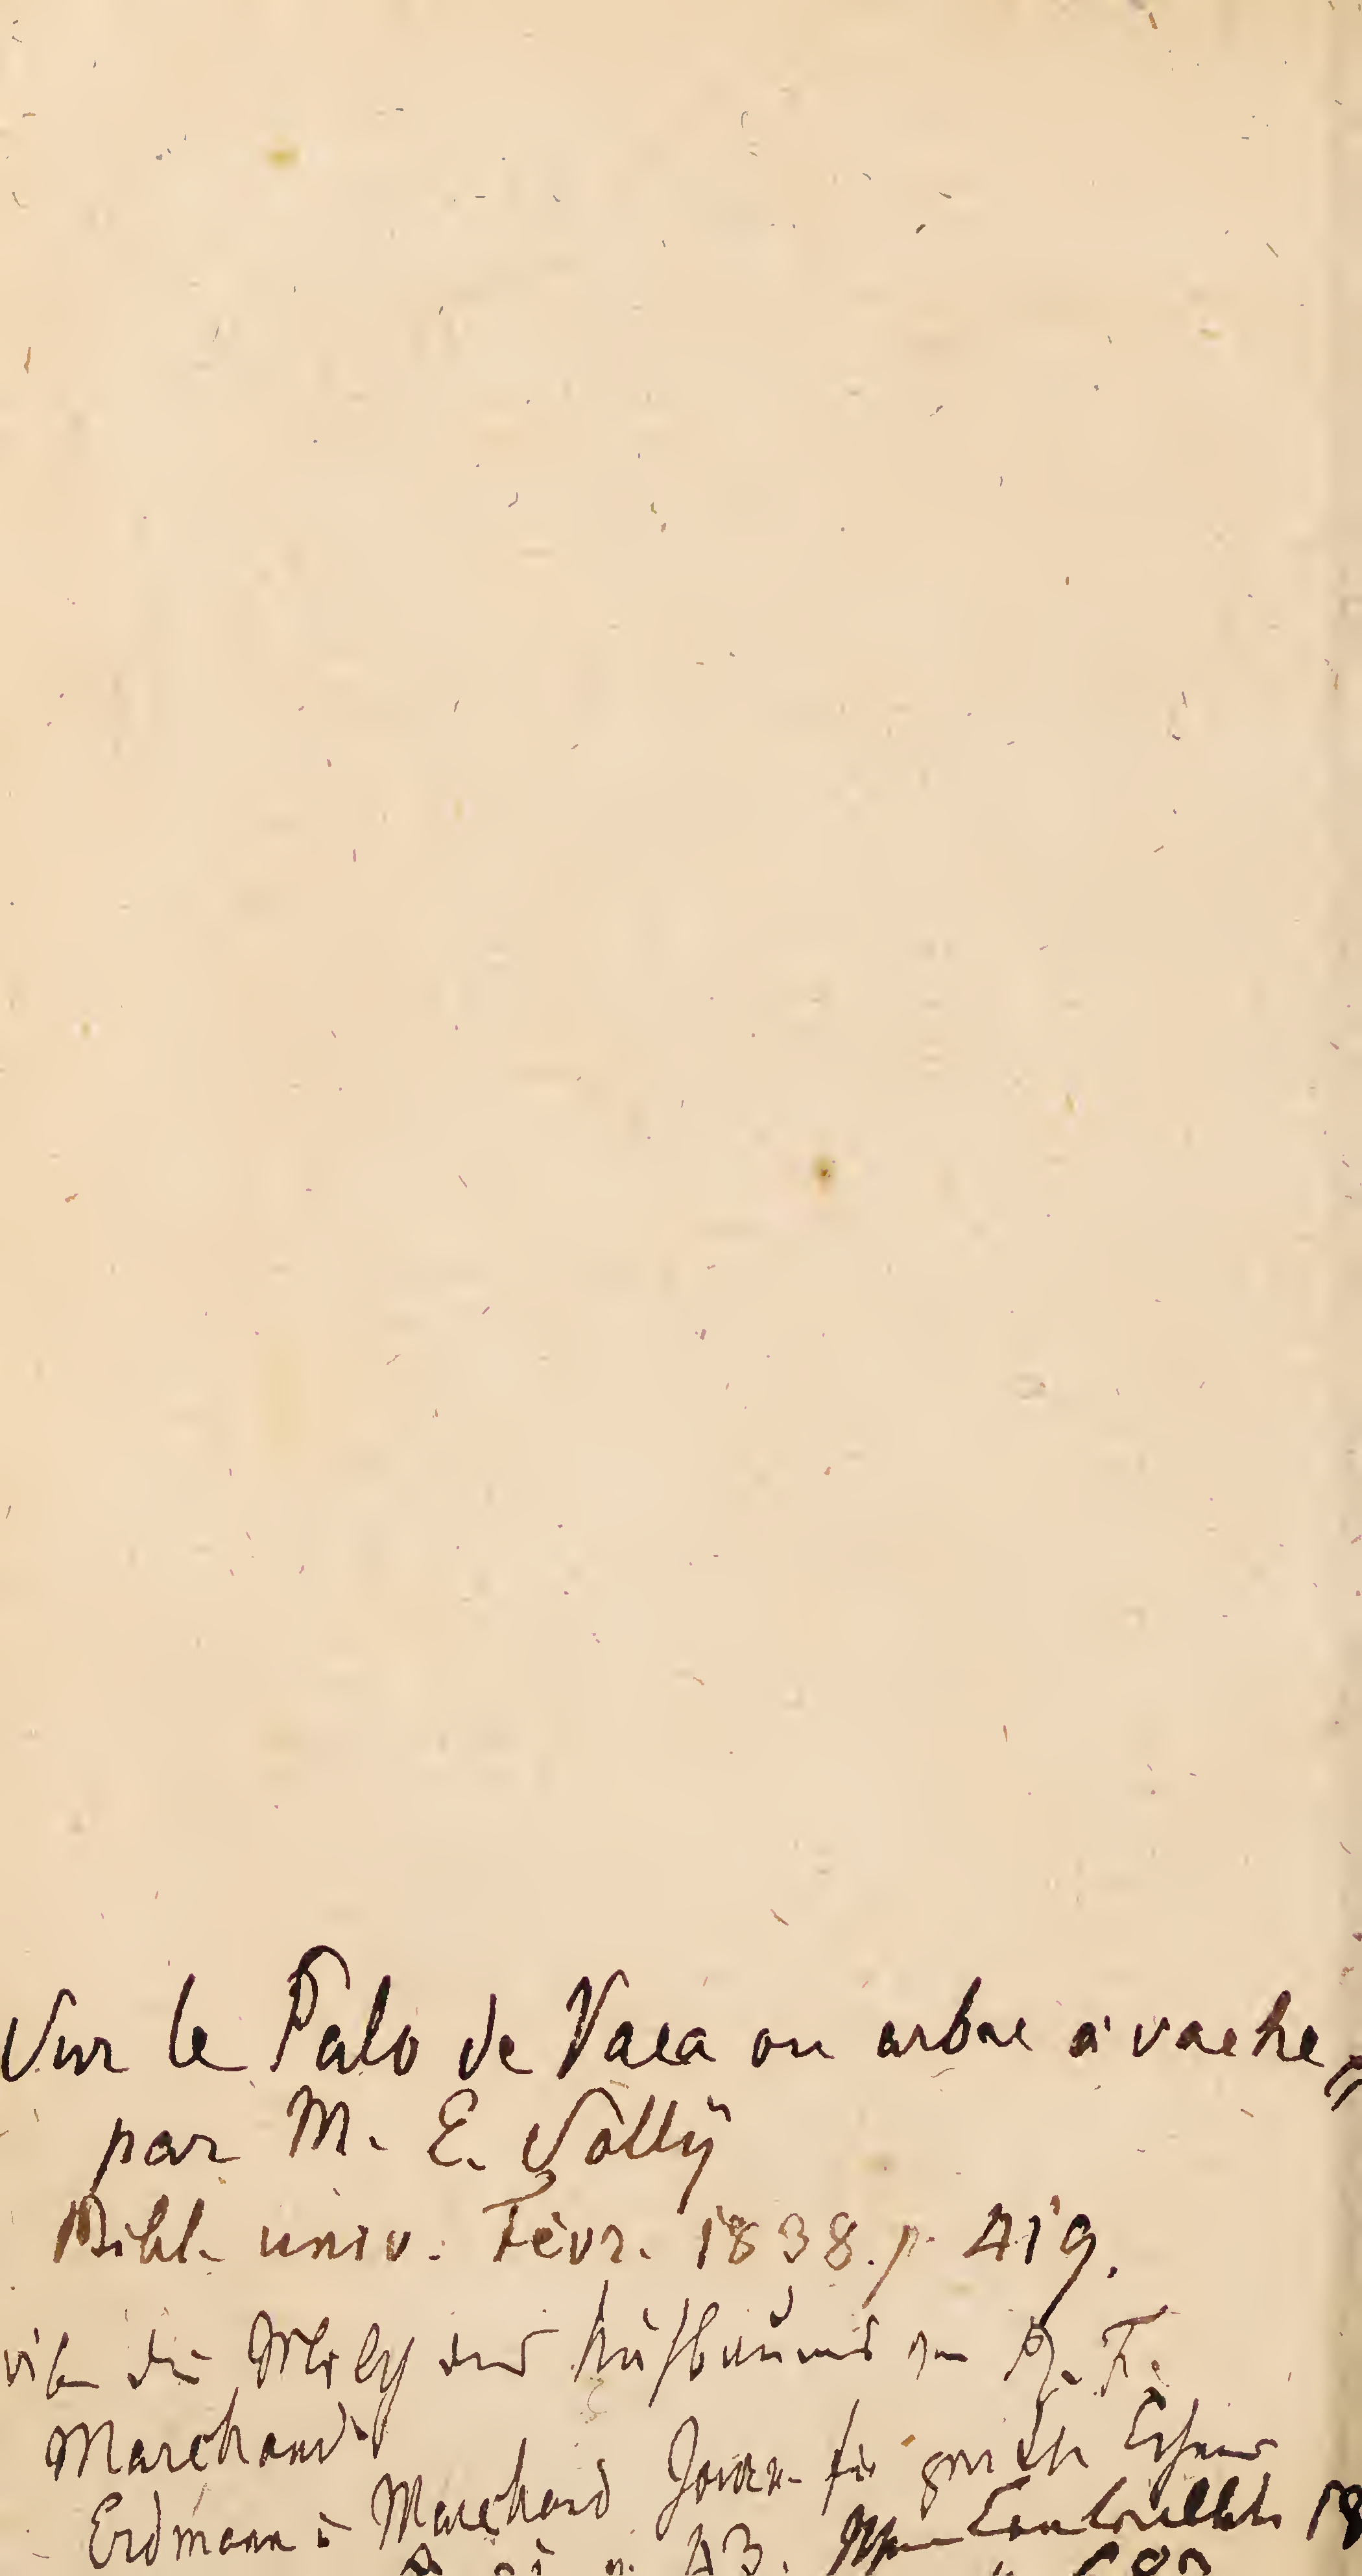 Sur le Palo de Vaca ou arbre à vache,
par M. E. Solly
Bibl. univ. Févr. 1838. p. 419.
über die Milch des Kuhbaumes von R. F.
Marchand
Erdmann u Marchand Journ. für prakt. Chemie
p. 43. Centralblatt 18